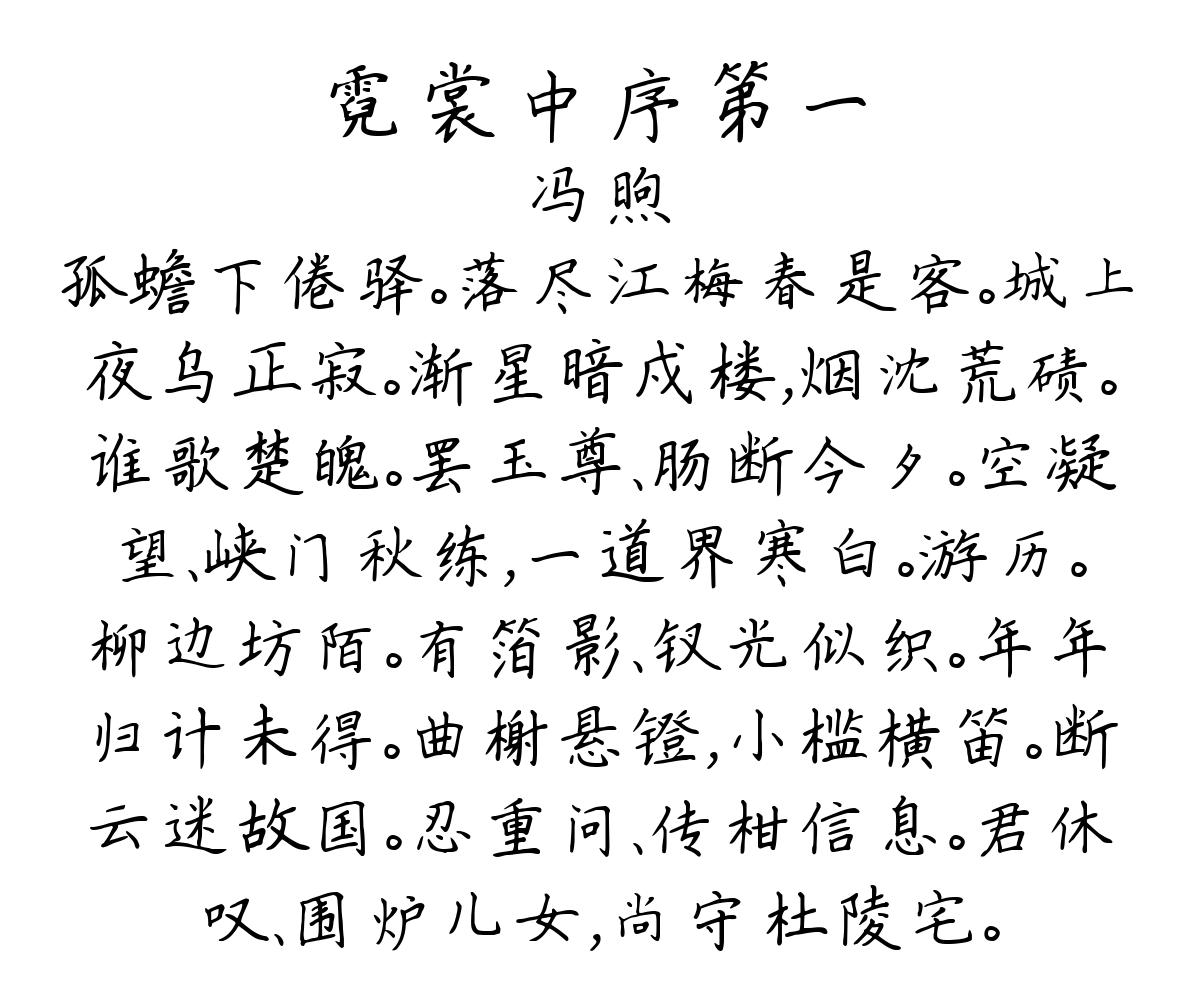 霓裳中序第一
冯煦
孤蟾下倦驿。落尽江梅春是客。城上
夜乌正寂。渐星暗戍楼,烟沈荒碛。
谁歌楚魄。罢玉尊、肠断今夕。空凝
望、峡门秋练,一道界寒白。游历。
柳边坊陌。有箔影、钗光似织。年年
归计未得。曲榭悬镫,小槛横笛。断
云迷故国。忍重问、传柑信息。君休
叹、围炉儿女,尚守杜陵宅。